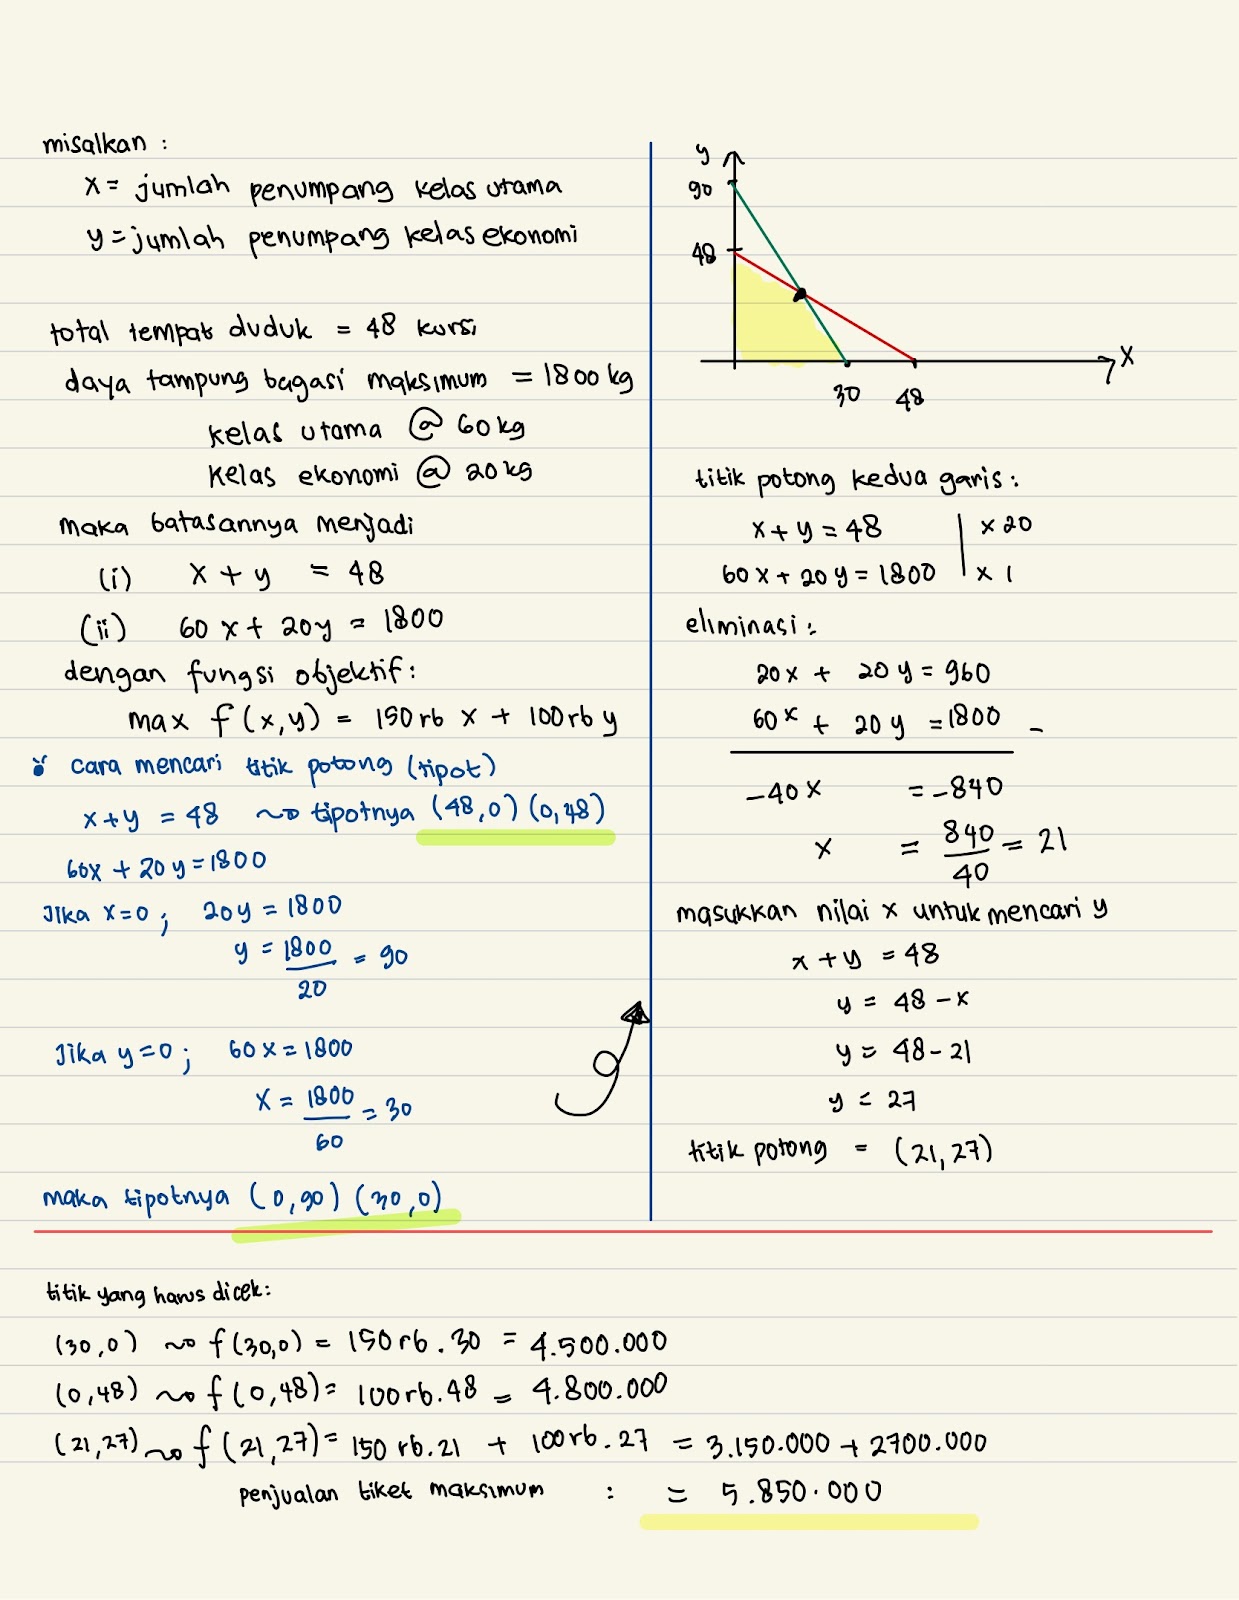 misalkan :
x = jumlah penumpang kelas utama
y = jumlah penumpang kelas ekonomi
total tempat duduk = 48 kursi
daya tampung bagasi maksimum = 1800 kg
kelas utama @ 60 kg
kelas ekonomi @ 20 kg
maka batasannya menjadi
(i) x + y = 48
(ii) 60 x + 20y = 1800
dengan fungsi objektif :
max f(x,y) = 150 rb x + 100 rb y
cara mencari titik potong (tipot)
x + y = 48 ~> tipotnya (48,0) (0,48)
60x + 20 y = 1800
Jika x = 0 ; 20y = 1800
y = 1800/20 = 90
Jika y = 0 ; 60 x = 1800
x = 1800/60 = 30
maka tipotnya (0,90) (30,0)
y
90
48
x
30 48
titik potong kedua garis :
x + y = 48 | x 20
60 x + 20 y = 1800 | x 1
eliminasi :
20x + 20 y = 960
60x + 20 y = 1800 -
-40x = -840
x = 840/40 = 21
masukkan nilai x untuk mencari y
x + y = 48
y = 48 - x
y = 48 - 21
y = 27
titik potong = (21,27)
titik yang harus dicek :
(30,0) ~> f(30,0) = 150 rb . 30 = 4.500.000
(0,48) ~> f(0,48) = 100 rb . 48 = 4.800.000
(21,27) ~> f(21,27) = 150 rb . 21 + 100 rb . 27 = 3.150.000 + 2700.000
penjualan tiket maksimum : = 5.850.000